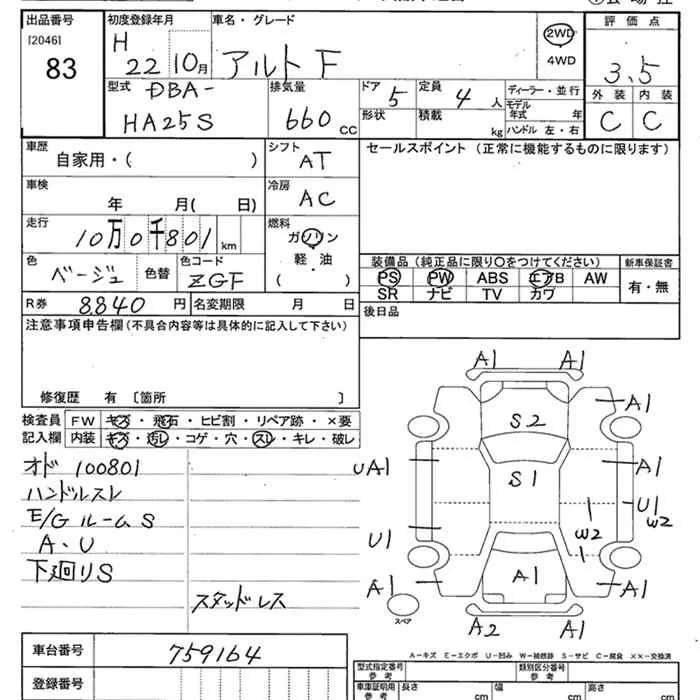 出品番号 初度登録年月 車名・グレード 評価点
[2046] H 2WD
83 22 10月 アルト F 4WD 3.5
型式 DBA- 排気量 ドア 定員 ディーラー・並行 外装 内装
5 4人 モデル年式 年
HA25S 660cc 形状 積載 kg ハンドル 左・右 C C
車歴 シフト セールスポイント (正常に機能するものに限ります)
自家用・( ) AT
車検 冷房
年 月( 日) AC
走行 燃料
10万0千801km ガソリン
軽・油
( )
色 色コード 装備品 (純正品に限り○をつけてください) 新車保証書
ベージュ 色替 ZGF PS PW ABS エアB AW 有・無
SR ナビ TV カワ
R券 8840円 名変期限 月 日 後日品
注意事項申告欄 (不具合内容等は具体的に記入して下さい)
修復歴 有 [箇所 ]
検査員 FW キズ・飛石・ヒビ割・リペア跡・×要
記入欄 内装 キズ・汚レ・コゲ・穴・スレ・キレ・破レ
オド 100801
ハンドルスレ
E/Gルーム S
A、U
下廻りS
スタッドレス
A1 A1
S2 A1
UA1 S1 A1
U1 W2
U1 W2
A1 A1 A1
スペア
A2 A1
A−キズ E−エクボ U−凹み W−補修跡 S−サビ C−腐食 ××−交換済
車台番号 759164
登録番号
型式指定番号 参考 類別区分番号 参考
車庫証明用 参考 長さ cm 幅 cm 高さ cm